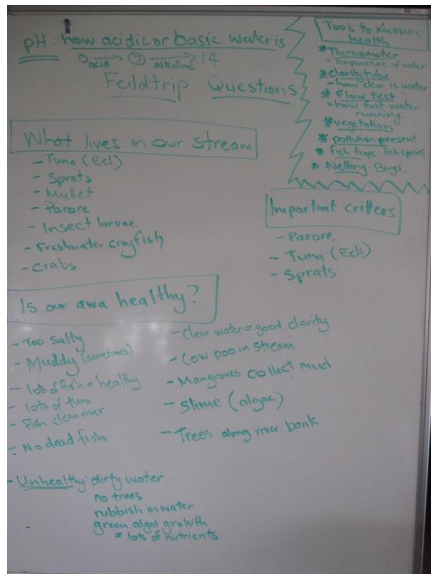 pH: how acidic or basic water is
0 acid → 7 → alkaline 14
Feildtrip Questions
Tools to measure
health
* Thermometer
- Temperature of water
* clarity tube
- how clear is water
* Flow test
- how fast water
running
* vegetation
* pollution present
* Fish traps: fish species
* Netting: Bugs.
What lives in our stream
- Tuna (Eel)
- Sprats
- Mullet
- Parore
- Insect larvae
- Freshwater crayfish
- Crabs
Important critters
- Parore
- Tuna (Eels)
- Sprats
Is our awa healthy?
- Too salty
- Muddy (sometimes)
- lots of fish = healthy
- lots of tuna
- Fish clean river
- No dead fish
- Clear water = good clarity
- Cow poo in stream
- Mangroves collect mud
- Slime (algae)
- Trees along river bank
- Unhealthy: dirty water
no trees
rubbish in water
green algal growth
= lots of nutrients